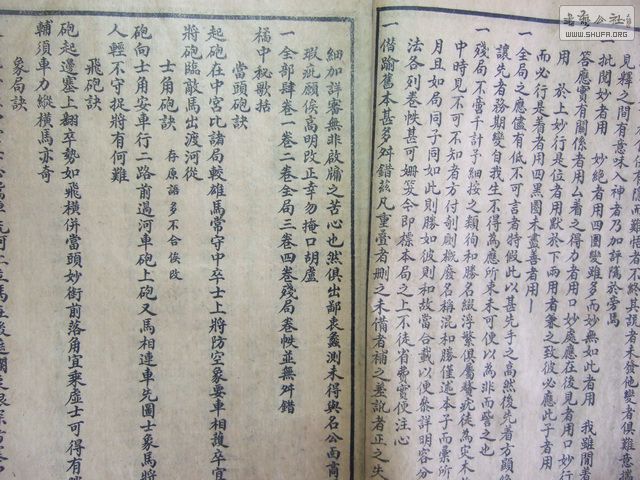 見釋之間有意味入神者乃加評隲於旁焉
一批閱妙者用 妙絕者用四圈變雖多而妙無如此者用 我雖閒著
答應實有關係者用厶着之得力者用口妙處應在後見者用口妙行
用 於上妙行是位者用默於下兩用者兼之致彼必應此子者用
而必行是着者用四黑圈未盡善者用
一全局之應儘有低不可言者特假此以甚先手之高然後先着方顯
讓先者務期變自我生不得為應所束未可便以為非而訾之也
一殘局不啻千計子細按之類徇和勝名綴浮繁俱屬贅疣徒為
中時見不可不知者方付剞劂
月且如局同子同如此則勝如彼則和故當合載以便叅詳明容分
法各列卷帙甚可姍笑今即標本局之上不徒省費實便注心
一借踰舊本甚多舛錯茲凡重疊者刪之未備者補之差訛者正之失
細加詳審無非啟牖之苦心也然俱出鄙衷蠡測未得與名公面商
瑕疵願俟高明改正幸勿掩口胡盧
一全部肆卷一卷二卷全局三卷四卷殘局卷帙並無舛錯
橘中秘歌括
當頭砲訣
起砲在中宮比諸局較雄馬常守中卒士上將防空象要車相護卒宜
將砲臨敵馬出渡河從
士角砲訣 存原語多不合俟改
砲向士角安車行二路前過河車砲上砲又馬相連車先圖士象馬將
人輕不守捉將有何難
飛砲訣
砲起邊塞上翻卒勢如飛橫併當頭妙衝前落角宜乘虛士可得有
輔須車力縱橫馬亦奇
象局訣
書藝公社
WWW.SHUFA.ORG